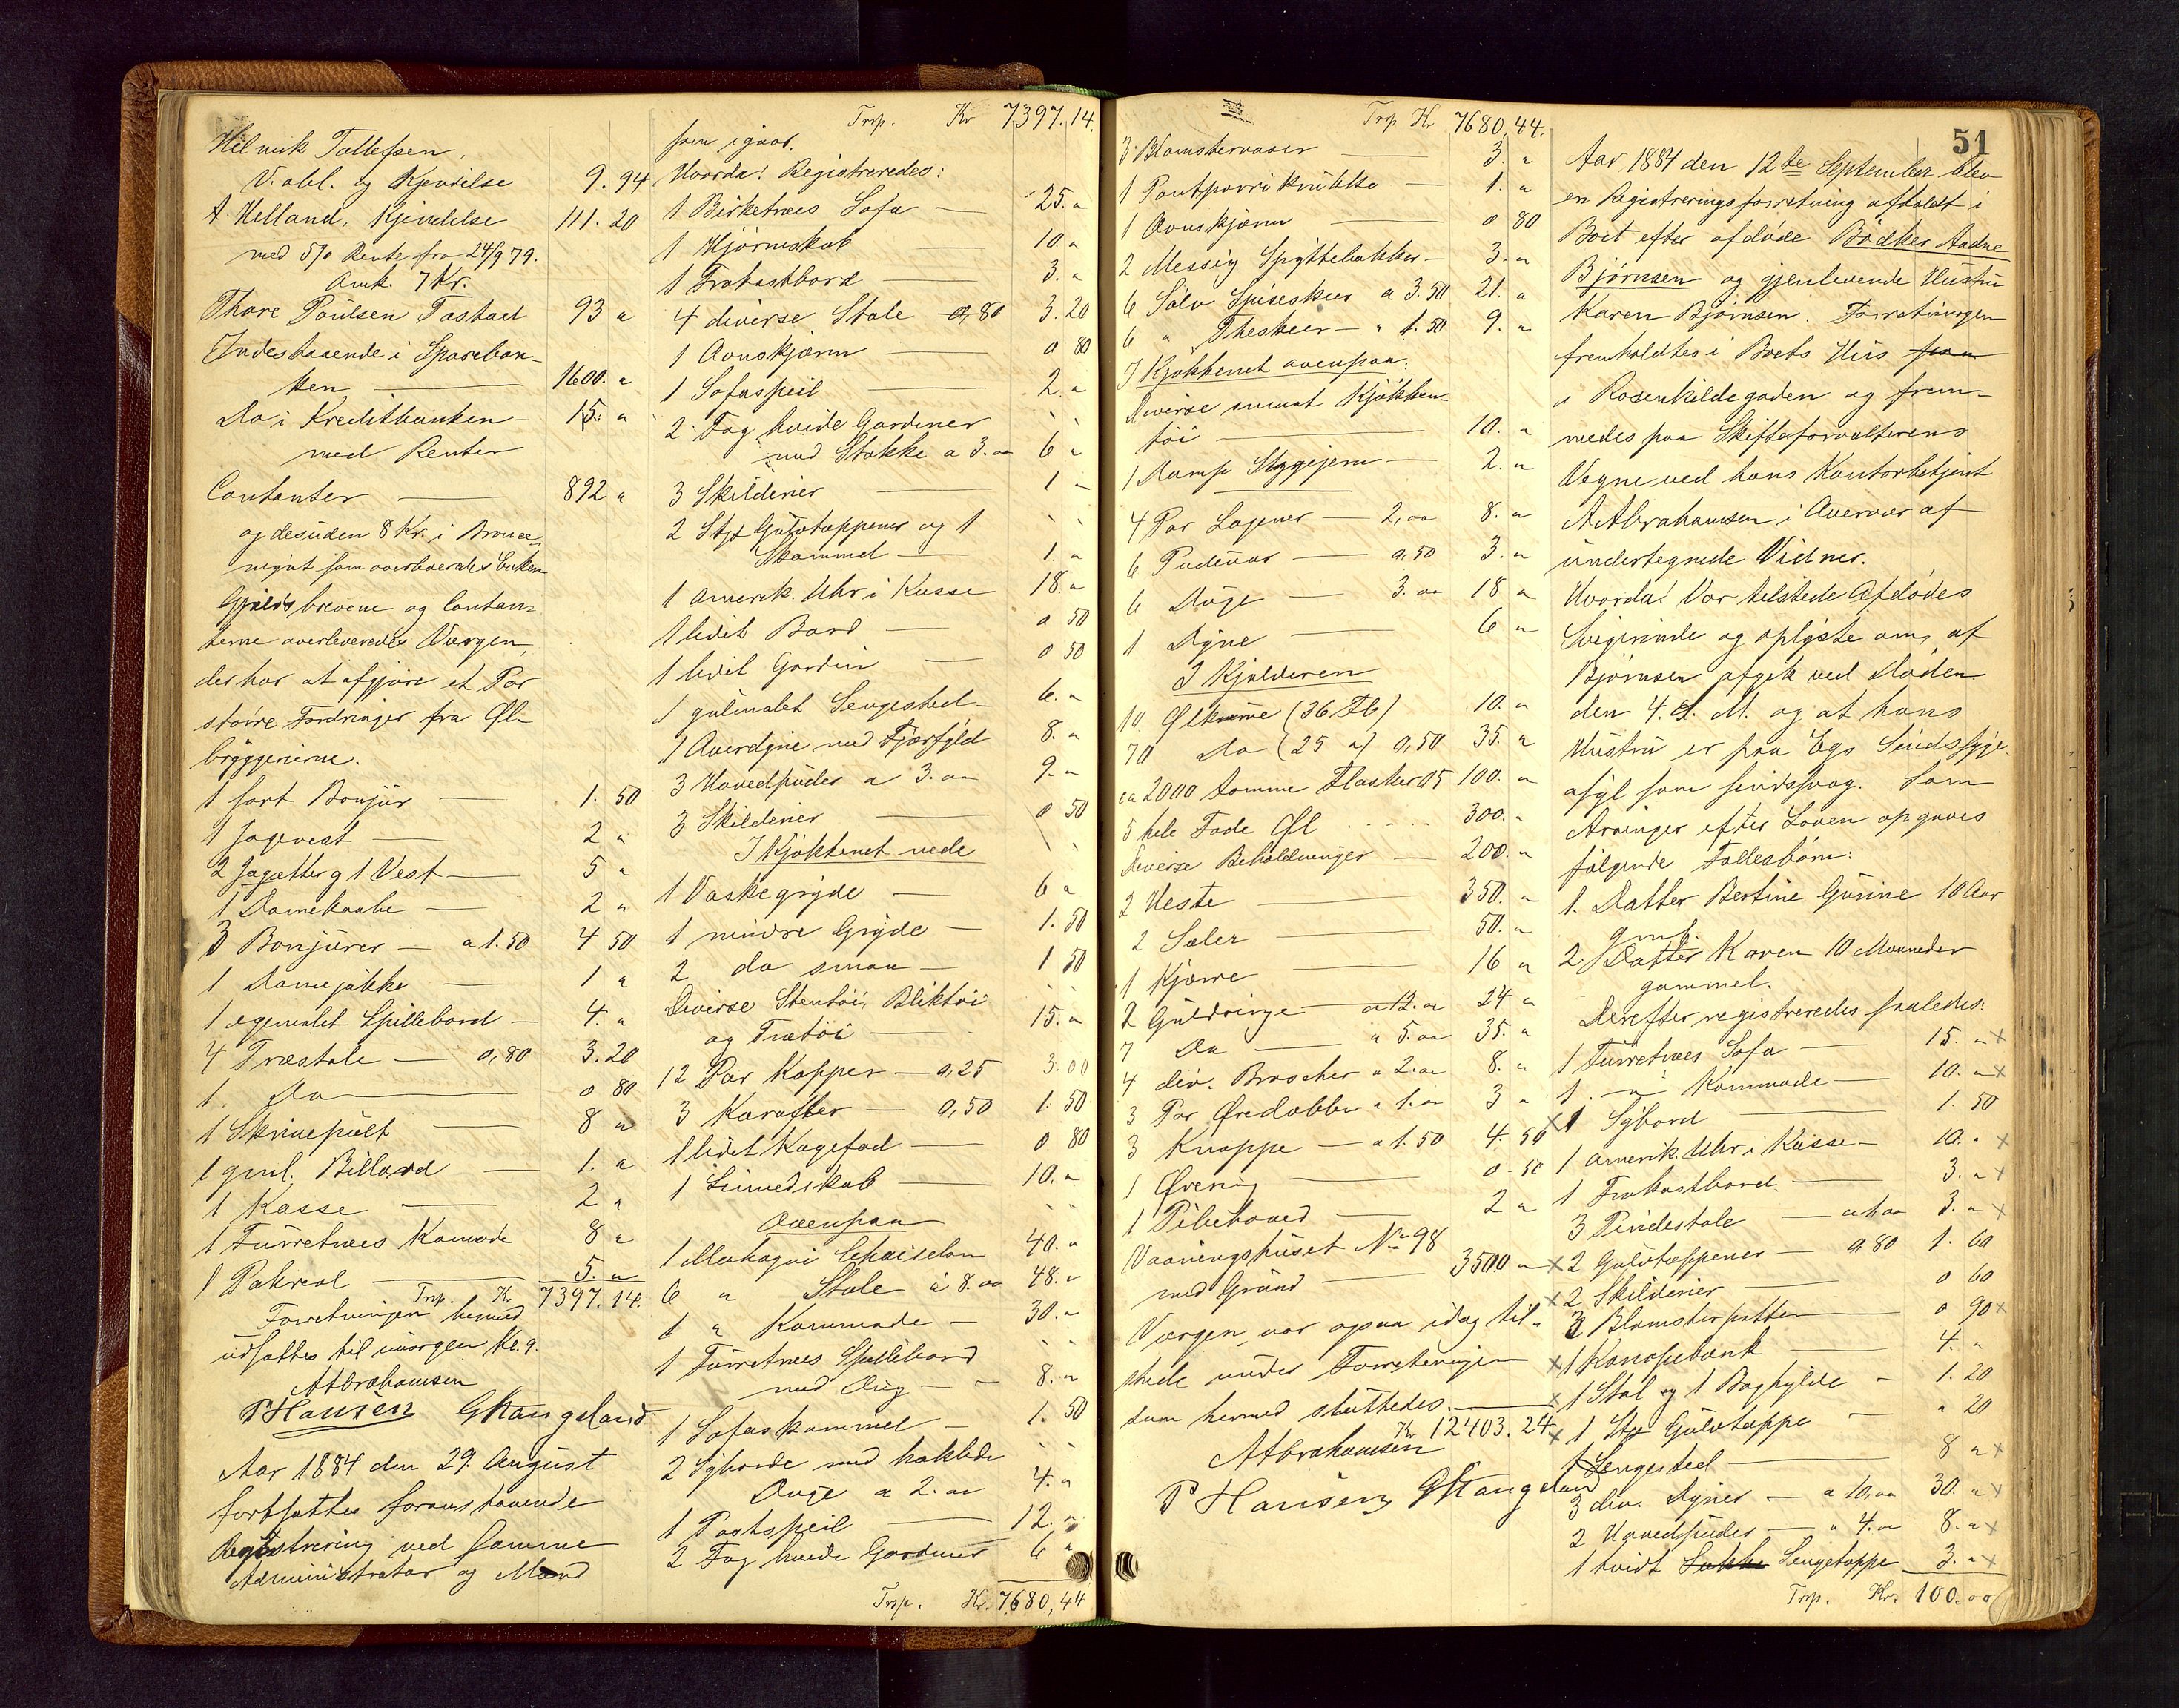 Helmik Tollefsen,
V. obl. og Kjendelse 9. 94
A. Helland, Kjendelse 111. 20
med 5% Rente fra 24/9 79.
Omk. 7 Kr.
Thore Poulsen Tastad 93 "
Indestaaende i Spareban-
ken 1600. "
Do i Kreditbanken 15. "
med Renter
Contanter 892 "
og desuden 8 Kr. i Bronce
mynt som overleveredes Enken
Gjældsbrevene og Contan-
terne overleveredes Værgen,
der har at afgjøre et Par
større Fordringer fra Øl-
bryggerierne.
1 sort Bonjur 1. 50
1 Jagvest 2 "
2 Jagetter og 1 Vest 5 "
1 Damekaabe 2 "
3 Bonjurer a 1. 50 4 50
1 Damejakke 1 "
1 egemalet Spillebord 4. "
4 Træstole 0,80 3. 20
1. Do 0 80
1 Skrivepult 8 "
1 gml. Billard 1. "
1 Kasse 2 "
1 Furretræes Komode 8 "
1 Pakreol 5. "
Trsp. Kr 7397. 14.
Forretningen hermed
udsattes til imorgen Kl. 9.
AAbrahamsen
P Hansen GStangeland
Aar 1884 den 29. August
fortsattes foranstaaende
Registrering ved samme
Administrator og Mænd
Trsp. Kr 7397. 14.
som igaar.
Hvorda: Registreredes:
1 Birketræes Sofa 25. "
1 Hjørneskab 10. "
1 Frokostbord 3. "
4 diverse Stole 0,80 3. 20
1 Ovnskjærm 0 80
1 Sofaspeil 2. "
2 Fag hvide Gardiner
med Stokke a 3. " 6 "
3 Skilderier 1 "
2 Stkr Gulvtæppener og 1
Skammel 1. "
1 Amerik. Uhr i Kasse 18. "
1 lidet Bord 0 50
1 lidet Gardin 0 50
1 gulmalet Sengested 6. "
1 Overdyne med Fjærfyld 8. "
3 Hovedpuder a 3. " 9. "
3 Skilderier 0 50
I Kjøkkenet nede
1 Vaskegryde 6 "
1 mindre Gryde 1. 50
2 do smaa 1 50
Diverse Stentøi, Bliktøi
og Trætøi 15. "
12 Par Kopper 0,25 3. 00
3 Karafler 0,50 1. 50
1 lidet Kagefad 0 80
1 Linnedskab 10. "
Ovenpaa
1 Mahogni Chaiselon 40. "
6 " Stole à 8. " 48. "
1 " Kommode 30. "
1 Furretræes Spillebord
med Dug 8. "
1 Sofaskammel 1. 50
2 Syborde med hæklede
Duge a 2. " 4. "
1 Postspeil 12. "
2 Fag hvide Gardiner 6 "
Trsp. Kr. 7680,44
Trsp Kr 7680,44.
3 Blomstervaser 3. "
1 Poutpovrikrukke 1. "
1 Ovnskjærm 0 80
2 Messing Spyttebakker 3. "
6 Sølv Spiseskeer a 3. 50 21. "
6 " Theskeer " 1. 50 9. "
I Kjøkkenet ovenpaa:
Diverse smaat Kjøkken-
tøi 10. "
1 Damp Strygejern 2. "
4 Par Lagener 2, " 8. "
6 Pudevar 0,50 3. "
6 Duge 3. " 18 "
1 Dyne 6 "
I Kjelderen
10 Ølkasse (36 Fl) 10. "
70 Do (25 ") 0,50 35. "
ca 2000 tomme Flasker 05 100. "
5 hele Fade Øl 300. "
Diverse Beholdninger 200. "
2 Heste 350. "
2 Seler 50. "
1 Kjærre 16 "
2 Guldringe a 12. " 24 "
7 Do " 5. " 35. "
4 div. Broscher " 2. " 8. "
3 Par Øredobber " 1. " 3 "
3 Knappe a 1. 50 4. 50
1 Ørering 0 - 50
1 Pibehoved 2 "
Vaaningshuset No 98
med Grund 3500 "
Værgen var ogsaa idag til-
stede under Forretningen
som hermed sluttedes.
Kr 12403. 24.
AAbrahamsen
P Hansen GStangeland
51
Aar 1884 den 12te September blev
en Registreringsforretning afholdt i
Boet efter afdøde Bødker Aadne
Bjørnsen og gjenlevende Hustru
Karen Bjørnsen. Forretningen
fremholdtes i Boets Hus paa
i Rosenkildegaden og frem-
medes paa Skifteforvalterens
Vegne ved hans Kontorbetjent
A Abrahamsen i Overvær af
undertegnede Vidner.
Hvorda: Var tilstede Afdødes
Svigerinde og oplyste om, at
Bjørnsen afgik ved Døden
den 4. d. M. og at hans
Hustru er paa Egs Sindssyge-
asyl som sindssvag. Som
Arvinger efter Loven opgaves
følgende Fællesbørn:
1. Datter Bertine Gurine 10 Aar
gml.
2. Datter Karen 10 Maaneder
gammel.
Derefter registreredes saaledes:
1 Furretræes Sofa 15. " x
1. " Kommode 10. " x
x 1 Sybord 1. 50
1 Amerik. Uhr i Kasse 10. " x
1 Frokostbord 3. " x
3 Pindestole a 1. " 3. " x
x 2 Gulvtæppener 0 80 1. 60
x 2 Skilderier 0 60
3 Blomsterpotter 0 90 x
x 1 Kanapebænk 4. "
x 1 Stol og 1 Boghylde 1. 20
x 1 Stk Gulvtæppe " 20
1 Sengested 8 " x
3 div. Dyner a 10, " 30. " x
2 Hovedpuder " 4. " 8. " x
1 hvidt Lakke Sengetæppe 3. " x
Trsp. Kr. 100. 00